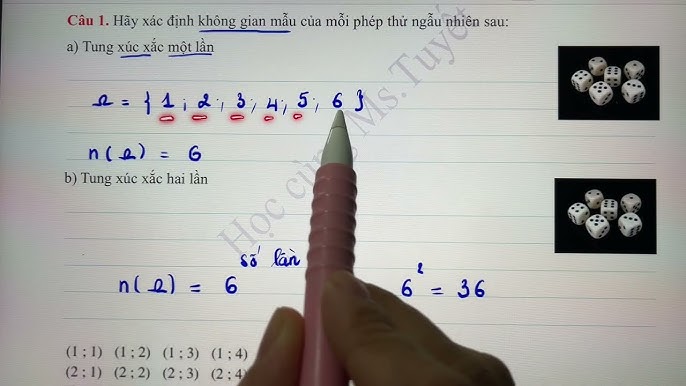 Câu 1. Hãy xác định không gian mẫu của mỗi phép thử ngẫu nhiên sau:
a) Tung xúc xắc một lần
Ω = { 1 ; 2 ; 3 ; 4 ; 5 ; 6 }
n(Ω) = 6
b) Tung xúc xắc hai lần
n(Ω) = 6^số lần 6² = 36
(1 ; 1) (1 ; 2) (1 ; 3) (1 ; 4)
(2 ; 1) (2 ; 2) (2 ; 3) (2 ; 4
Học cùng Ms.Tuyết